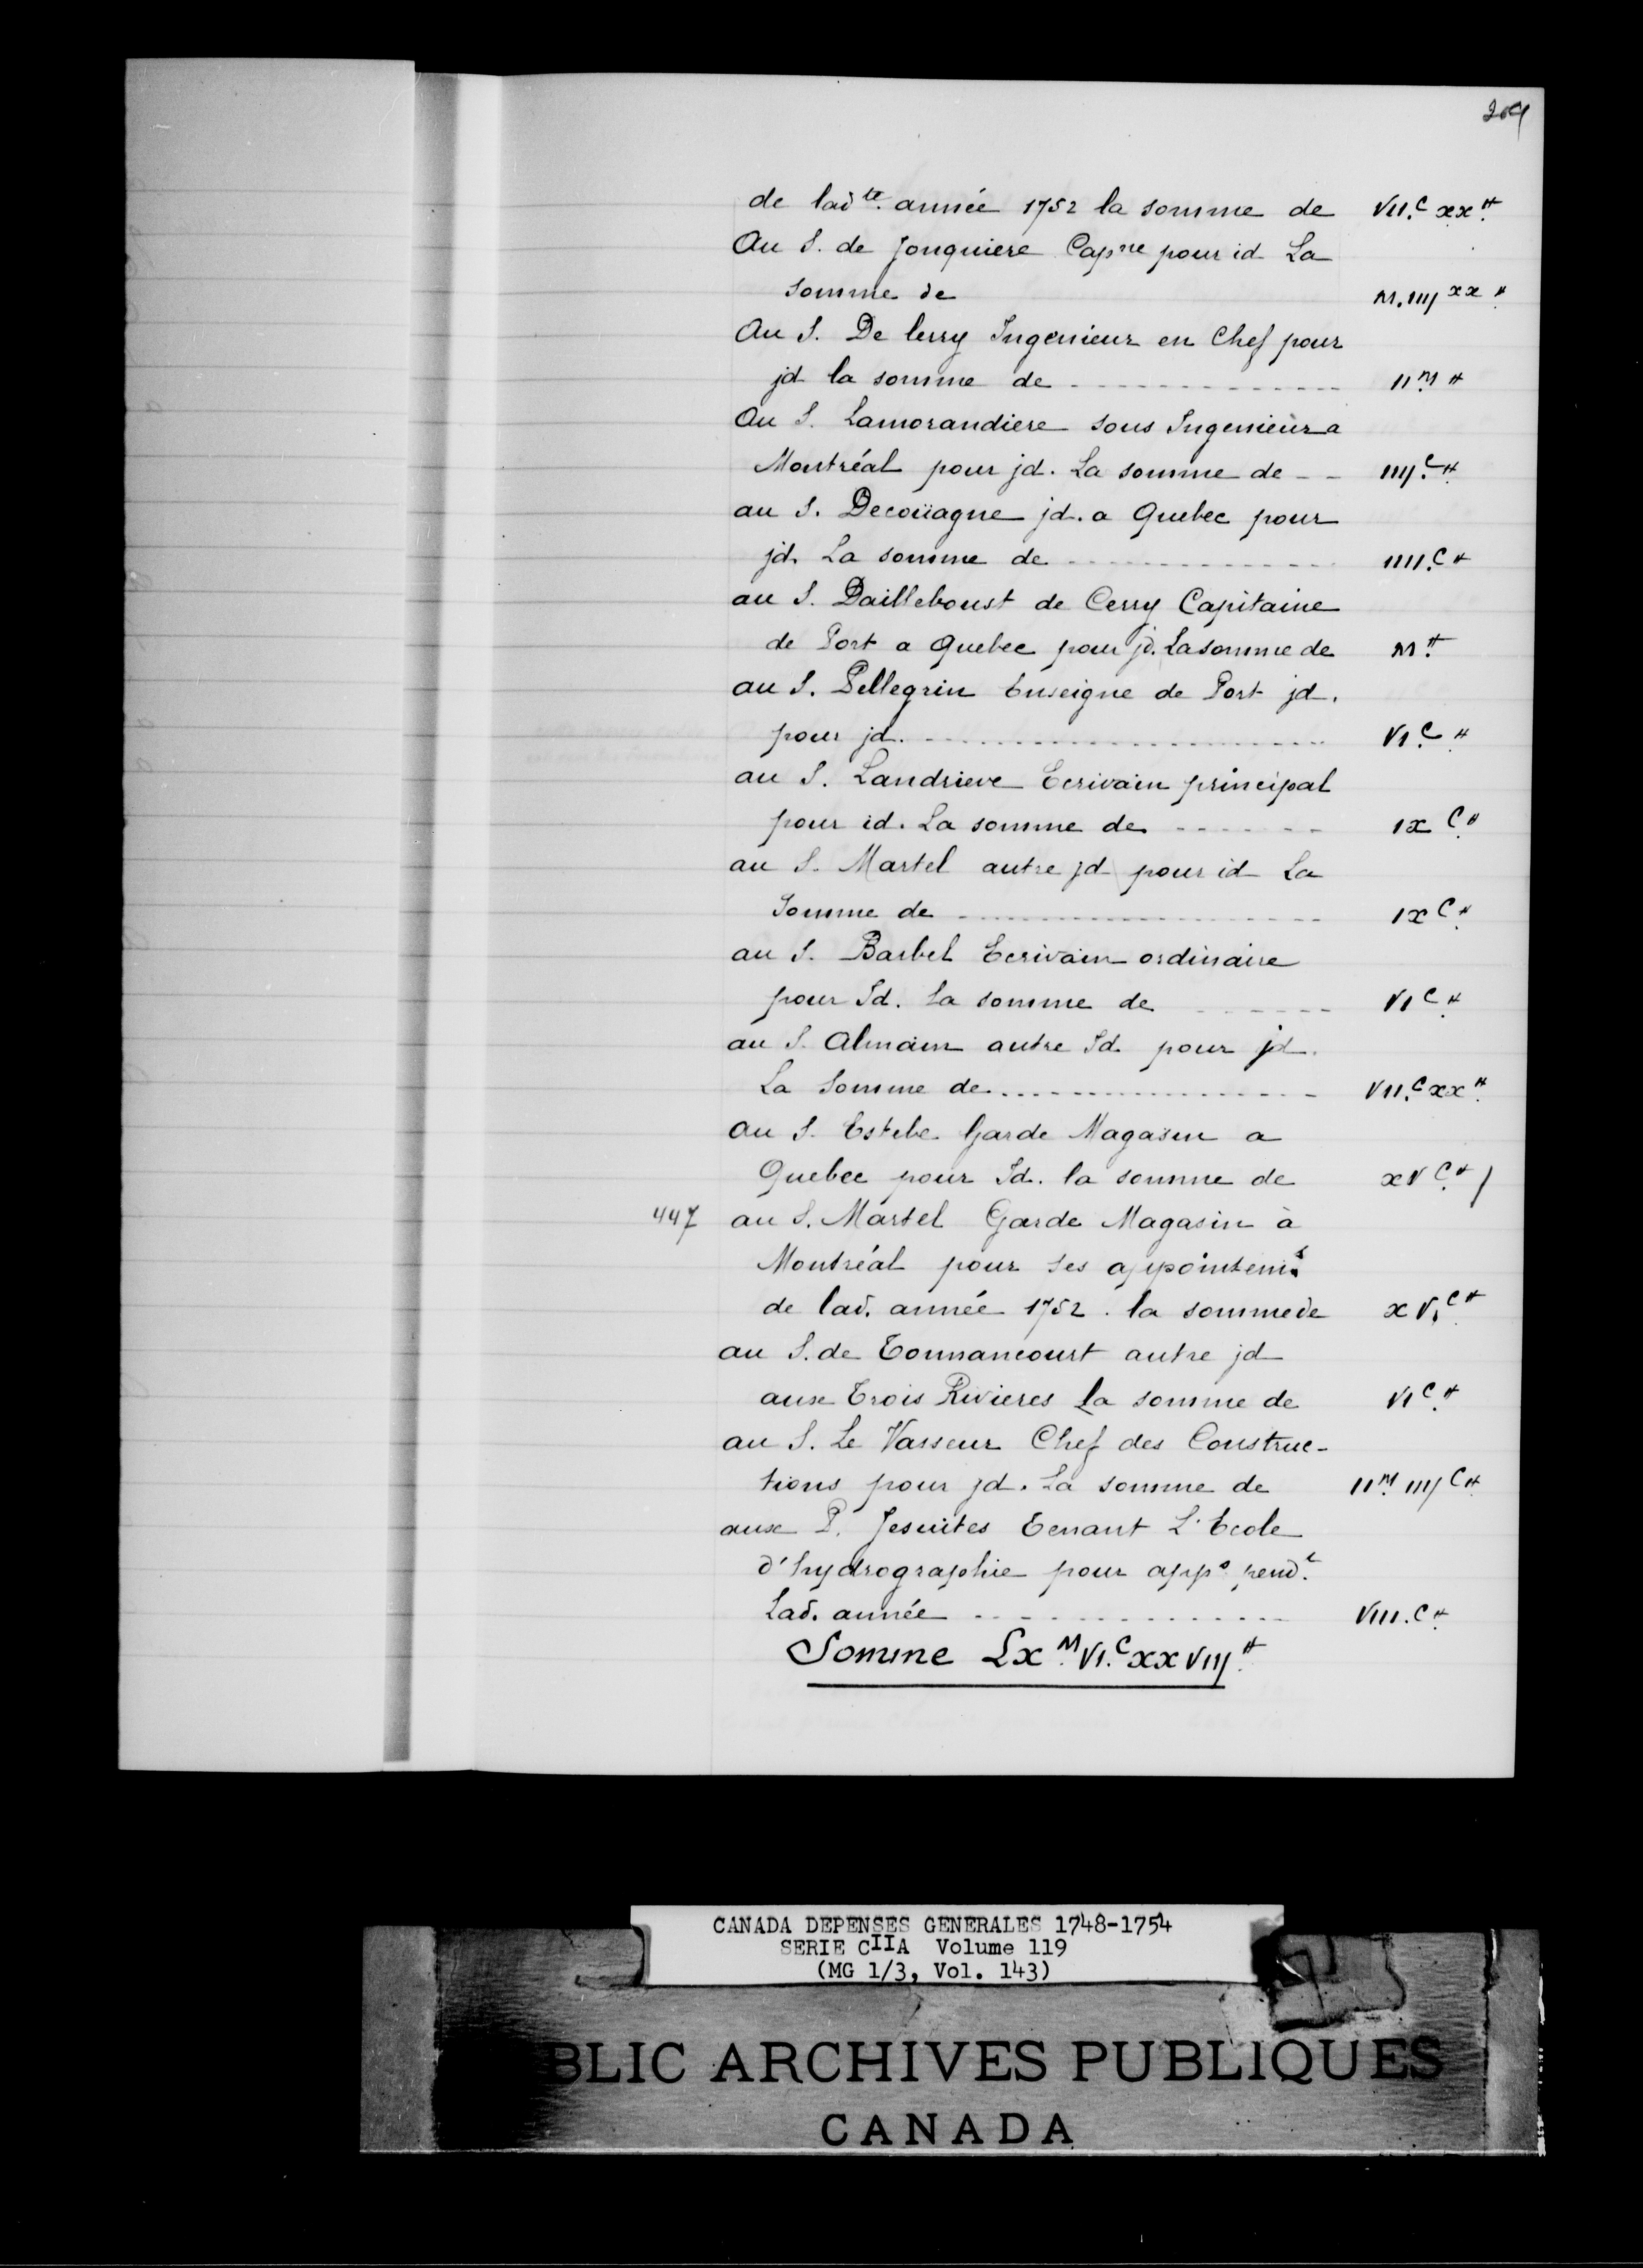 209
de lad te. année 1752 la somme de VII.C xx ₶
Au S. de Jonquiere Capne pour id La
somme de M.IIIJ xx ₶
Au S. De lery Ingenieur en Chef pour
jd la somme de II M ₶
Au S. Lamorandiere sous Ingenieur a
Montréal pour jd. La somme de IIIJ.C ₶
au S. Decoüagne jd. a Quebec pour
jd. La somme de IIII.C ₶
au S. Dailleboust de Cerry Capitaine
de Port a Quebec pour jd. La somme de M ₶
au S. Pellegrin Enseigne de Port jd.
pour jd. VI.C ₶
au S. Landrieve Ecrivain principal
pour id. La somme de IX C ₶
au S. Martel autre jd pour id La
Somme de IX C ₶
au S. Barbel Ecrivain ordinaire
pour Id. la somme de VI C ₶
au S. Almain autre Id pour jd.
La Somme de VII.C xx ₶
au S. Estebe Garde Magasin a
Quebec pour Id. la somme de XV C ₶ /
447 au S. Martel Garde Magasin à
Montréal pour ses appointems
de lad. année 1752. la somme de XV.C ₶
au S. de Tonnancourt autre jd
aux Trois Rivieres La somme de VI C ₶
au S. Le Vasseur Chef des Construc-
tions pour jd. La somme de II M IIIJ C ₶
aux P. Jesuites Tenant L'Ecole
d'hydrographie pour apps pendt
Lad. année VIII.C ₶
Somme Lx M VI.C xxVIIJ ₶
CANADA DEPENSES GENERALES 1748-1754
SERIE CIIA Volume 119
(MG 1/3, Vol. 143)
BLIC ARCHIVES PUBLIQUES
CANADA